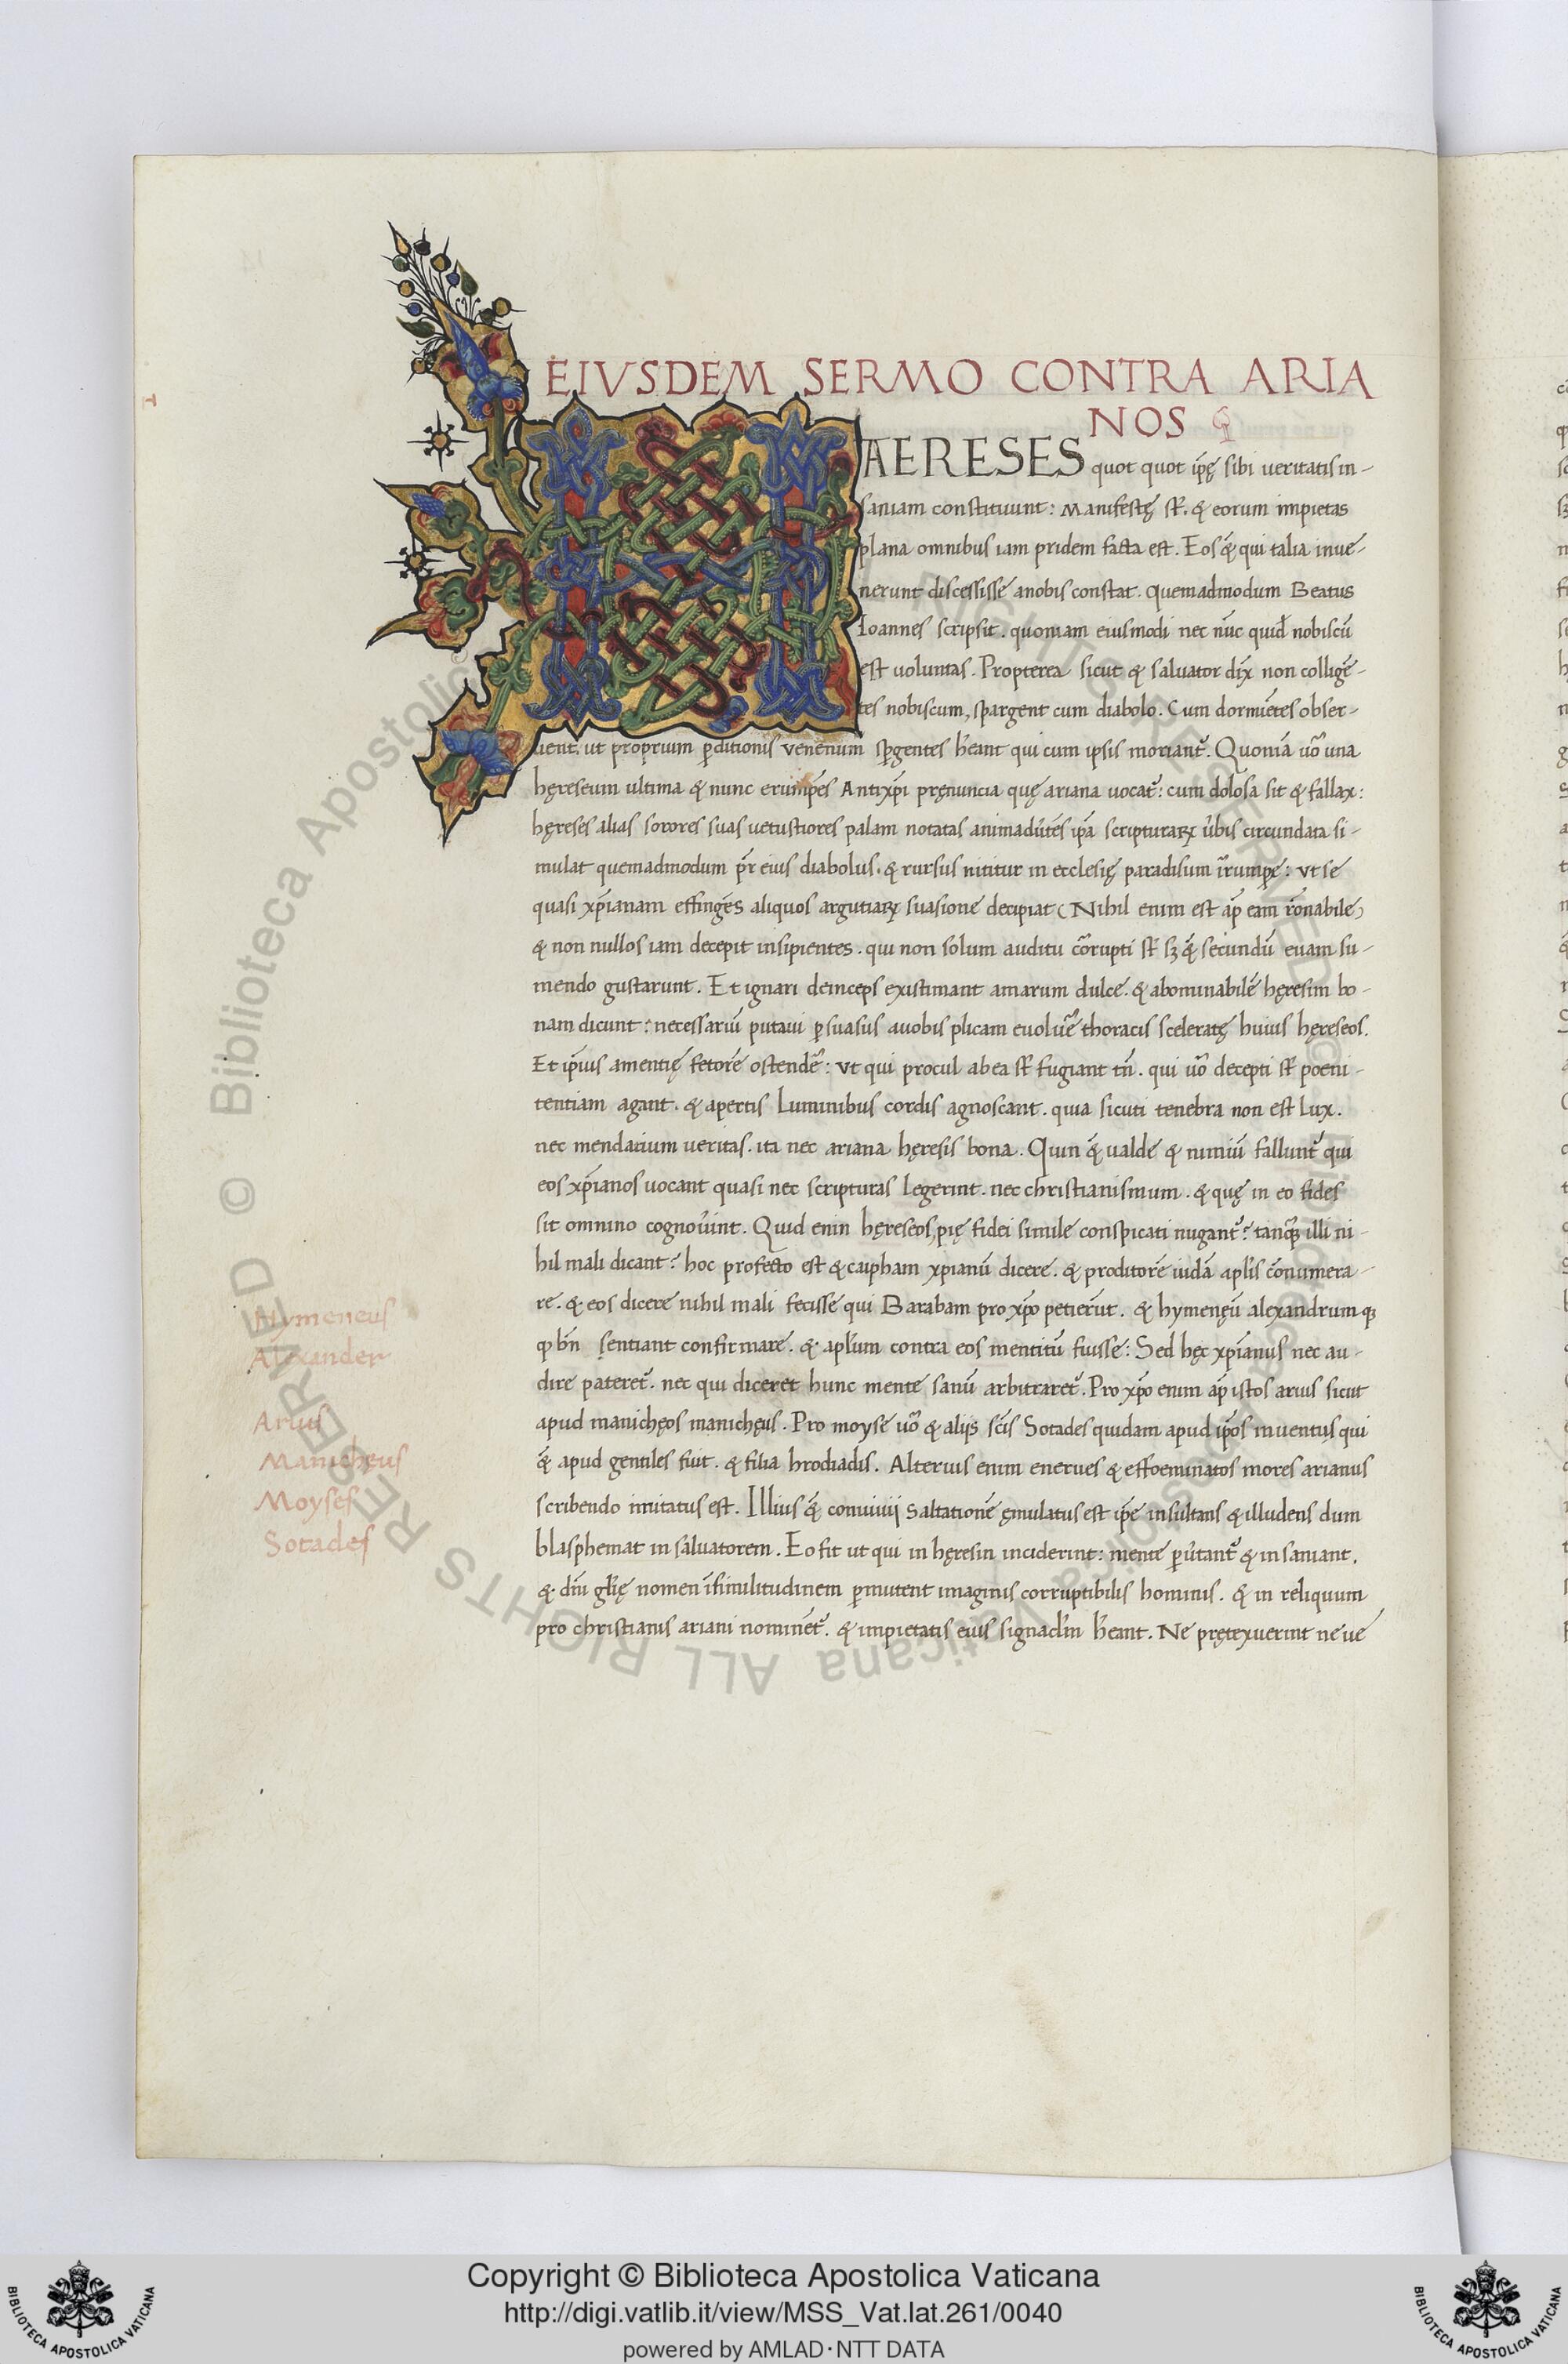 EIVSDEM SERMO CONTRA ARIA
NOS
HAERESES quot quot ip̅ę sibi ueritatis in-
saniam constituunt: Manifestę st̅. & eorum impietas
plana omnibus iam pridem facta est. Eos q̅ qui talia inue-
nerunt discessisse anobis constat. Quemadmodum Beatus
Ioannes scripsit. quoniam eiusmodi nec nu̅c quid̅ nobiscu̅
est uoluntas. Propterea sicut & saluator dix̅ non collige̅-
tes nobiscum, spargent cum diabolo. Cum dormie̅tes obser-
uent, ut proprium ꝑditionis venenum spgentes h̅eant qui cum ipsis moriant᷑. Quonia̅ uo᷑ una
hęreseum ultima & nunc erumpe̅s Antixp̅i pręnuncia quę ariana uocat᷑: cum dolosa sit & fallax:
hęreses alias sorores suas uetustiores palam notatas animadu̅te̅s ip̅a scripturaꝝ u̅bis circundata si-
mulat quemadmodum pr̅ eius diabolus. & rursus nititur in ecclesię paradisum ir᷑umpe᷑: vt se
quasi xp̅ianam effinge̅s aliquos argutiaꝝ suasione decipiat (Nihil enim est ap̅ eam r᷑onabile)
& non nullos iam decepit insipientes. qui non solum auditu co᷑rupti st̅ sꝫ q̅ secundu̅ euam su-
mendo gustarunt. Et ignari deinceps existimant amarum dulce. & abominabile̅ hęresim bo-
nam dicunt: necessariu̅ putaui ꝑsuasus auobis plicam euolue᷑ thoracis sceleratę huius hęreseos.
Et ip̅ius amentię fetore̅ ostende᷑: vt qui procul ab ea st̅ fugiant tn̅. qui uo᷑ decepti st̅ poeni-
tentiam agant. & apertis Luminibus cordis agnoscant. quia sicuti tenebra non est Lux.
nec mendacium ueritas. ita nec ariana hęresis bona. Quin q̅ ualde & nimiu̅ fallunt᷑ qui
eos xp̅ianos uocant quasi nec scripturas Legerint. nec christianismum. & quę in eo fides
sit omnino cognou̅int. Quid enin hęreseos, pię fidei simile conspicati nugant᷑? tanqꝫ illi ni-
hil mali dicant? hoc profecto est & caipham xpianu̅ dicere. & proditore̅ iuda̅ apl̅is co̅numera-
re. & eos dicere nihil mali fecisse qui Barabam pro xp̅o petieru̅t. & hymenęu̅ alexandrumqꝫ
ꝙ bn̅ sentiant confirmare. & apl̅um contra eos mentitu̅ fuisse: Sed hęc xp̅ianus nec au-
dire pateret᷑. nec qui diceret hunc mente sanu̅ arbitraret᷑. Pro xp̅o enim ap̅ istos arius sicut
apud manichęos manichęus. Pro moyse uo᷑ & alijs sc̅is Sotades quidam apud ip̅os inuentus qui
q̅ apud gentiles fuit. & filia hrodiadis. Alterius enim enerues & effoeminatos mores arianus
scribendo imitatus est. Illius q̅ conuiuij saltatione̅ ęmulatus est ip̅e insultans & illudens dum
blasphemat in saluatorem. Eo fit ut qui in hęresin inciderint: mente ꝑu̅tant᷑ & insaniant.
& dn̅i gl̅ię nomen i̅similitudinem ꝑmutent imaginis corruptibilis hominis. & in reliquum
pro christianis ariani nomine̅t᷑. & impietatis eius signacl̅m h̅eant. Ne prętexuerint ne ue
Hymeneus
Alexander
Arius
Manichęus
Moyses
Sotades
© Biblioteca Apostolica Vaticana ALL RIGHTS RESERVED
Copyright © Biblioteca Apostolica Vaticana
http://digi.vatlib.it/view/MSS_Vat.lat.261/0040
powered by AMLAD·NTT DATA
BIBLIOTECA APOSTOLICA VATICANA
BIBLIOTECA APOSTOLICA VATICANA